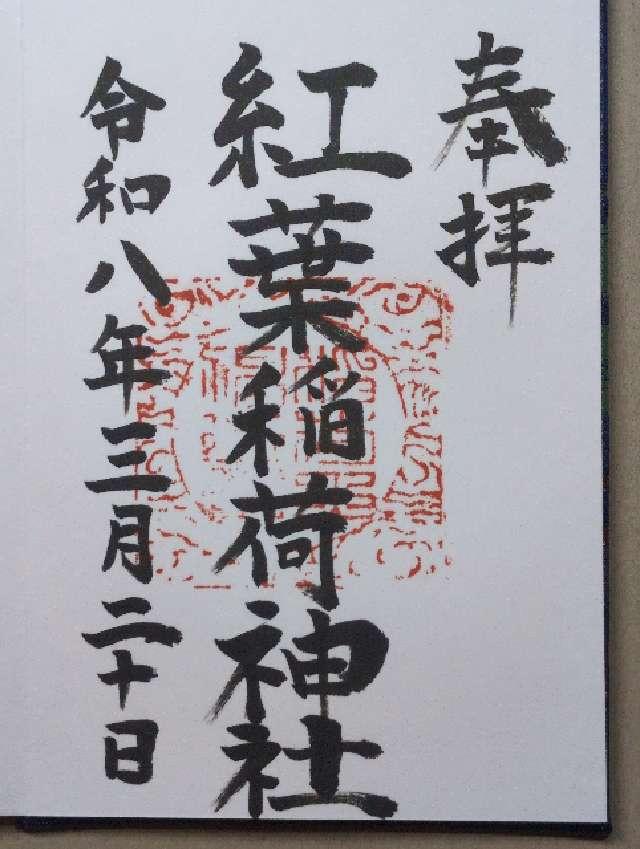 奉拝
紅葉稲荷神社
令和八年三月二十日